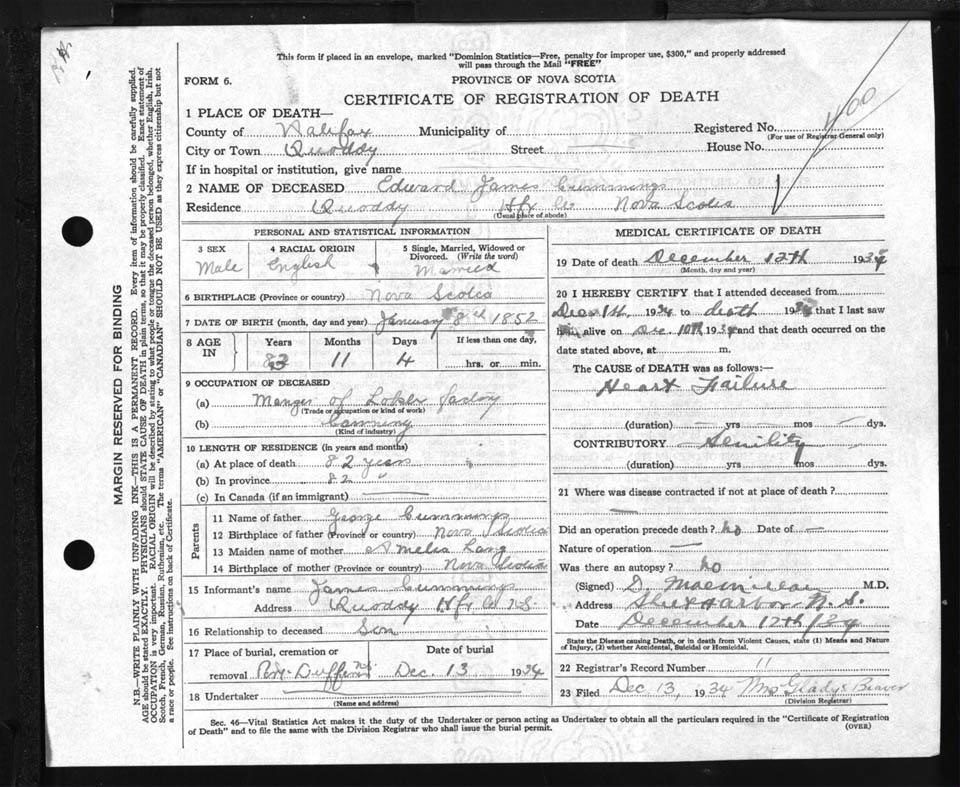 This form if placed in an envelope, marked "Dominion Statistics—Free, penalty for improper use, $300," and properly addressed
will pass through the Mail "FREE"
FORM 6.
PROVINCE OF NOVA SCOTIA
CERTIFICATE OF REGISTRATION OF DEATH
400
1 PLACE OF DEATH—
County of Halifax Municipality of
Registered No.
(For use of Registrar General only)
City or Town Quoddy Street House No.
If in hospital or institution, give name
2 NAME OF DECEASED Edward James Cummings
Residence Quoddy Hfx Co Nova Scotia
(Usual place of abode)
PERSONAL AND STATISTICAL INFORMATION
3 SEX 4 RACIAL ORIGIN 5 Single, Married, Widowed or
Divorced. (Write the word)
Male English Married
6 BIRTHPLACE (Province or country) Nova Scotia
7 DATE OF BIRTH (month, day and year) January 8th 1852
8 AGE IN Years Months Days If less than one day,
82 11 4 hrs. or min.
9 OCCUPATION OF DECEASED
(a) Manger of Lobster factory
(Trade or occupation or kind of work)
(b) Canning
(Kind of industry)
10 LENGTH OF RESIDENCE (in years and months)
(a) At place of death 82 years
(b) In province 82 "
(c) In Canada (if an immigrant)
Parents
11 Name of father George Cummings
12 Birthplace of father (Province or country) Nova Scotia
13 Maiden name of mother Amelia Lang
14 Birthplace of mother (Province or country) Nova Scotia
15 Informant's name James Cummings
Address Quoddy Hfx Co N.S.
16 Relationship to deceased Son
17 Place of burial, cremation or Date of burial
removal Port Dufferin N.S. Dec 13 1934
18 Undertaker
(Name and address)
MEDICAL CERTIFICATE OF DEATH
19 Date of death December 12th 1934
(Month, day and year)
20 I HEREBY CERTIFY that I attended deceased from
Dec 1st 1934 to death 1934 that I last saw
him alive on Dec 10th 1934 and that death occurred on the
date stated above, at m.
The CAUSE of DEATH was as follows:
Heart Failure
(duration) — yrs — mos — dys.
CONTRIBUTORY Senility
(duration) yrs mos dys.
21 Where was disease contracted if not at place of death?
Did an operation precede death? no Date of —
Nature of operation —
Was there an autopsy? no
(Signed) D. Macmillan M.D.
Address Sheet Harbor N.S.
Date December 12th/34
State the Disease causing Death, or in death from Violent Causes, state (1) Means and Nature
of Injury, (2) whether Accidental, Suicidal or Homicidal.
22 Registrar's Record Number 11
23 Filed Dec 13, 1934 Mrs Gladys Beaver
(Division Registrar)
Sec. 46—Vital Statistics Act makes it the duty of the Undertaker or person acting as Undertaker to obtain all the particulars required in the "Certificate of Registration
of Death" and to file the same with the Division Registrar who shall issue the burial permit.
(OVER)
MARGIN RESERVED FOR BINDING
N.B.—WRITE PLAINLY WITH UNFADING INK—THIS IS A PERMANENT RECORD. Every item of information should be carefully supplied.
AGE should be stated EXACTLY. PHYSICIANS should STATE CAUSE OF DEATH in plain terms, so that it may be properly classified. Exact statement of
OCCUPATION is very important. RACIAL ORIGIN will be described by stating to what people or tongue the deceased person belonged, whether English, Irish,
Scotch, French, German, Russian, Ruthenian, etc. The terms "AMERICAN" or "CANADIAN" SHOULD NOT BE USED as they express citizenship but not
a race or people. See instructions on back of Certificate.